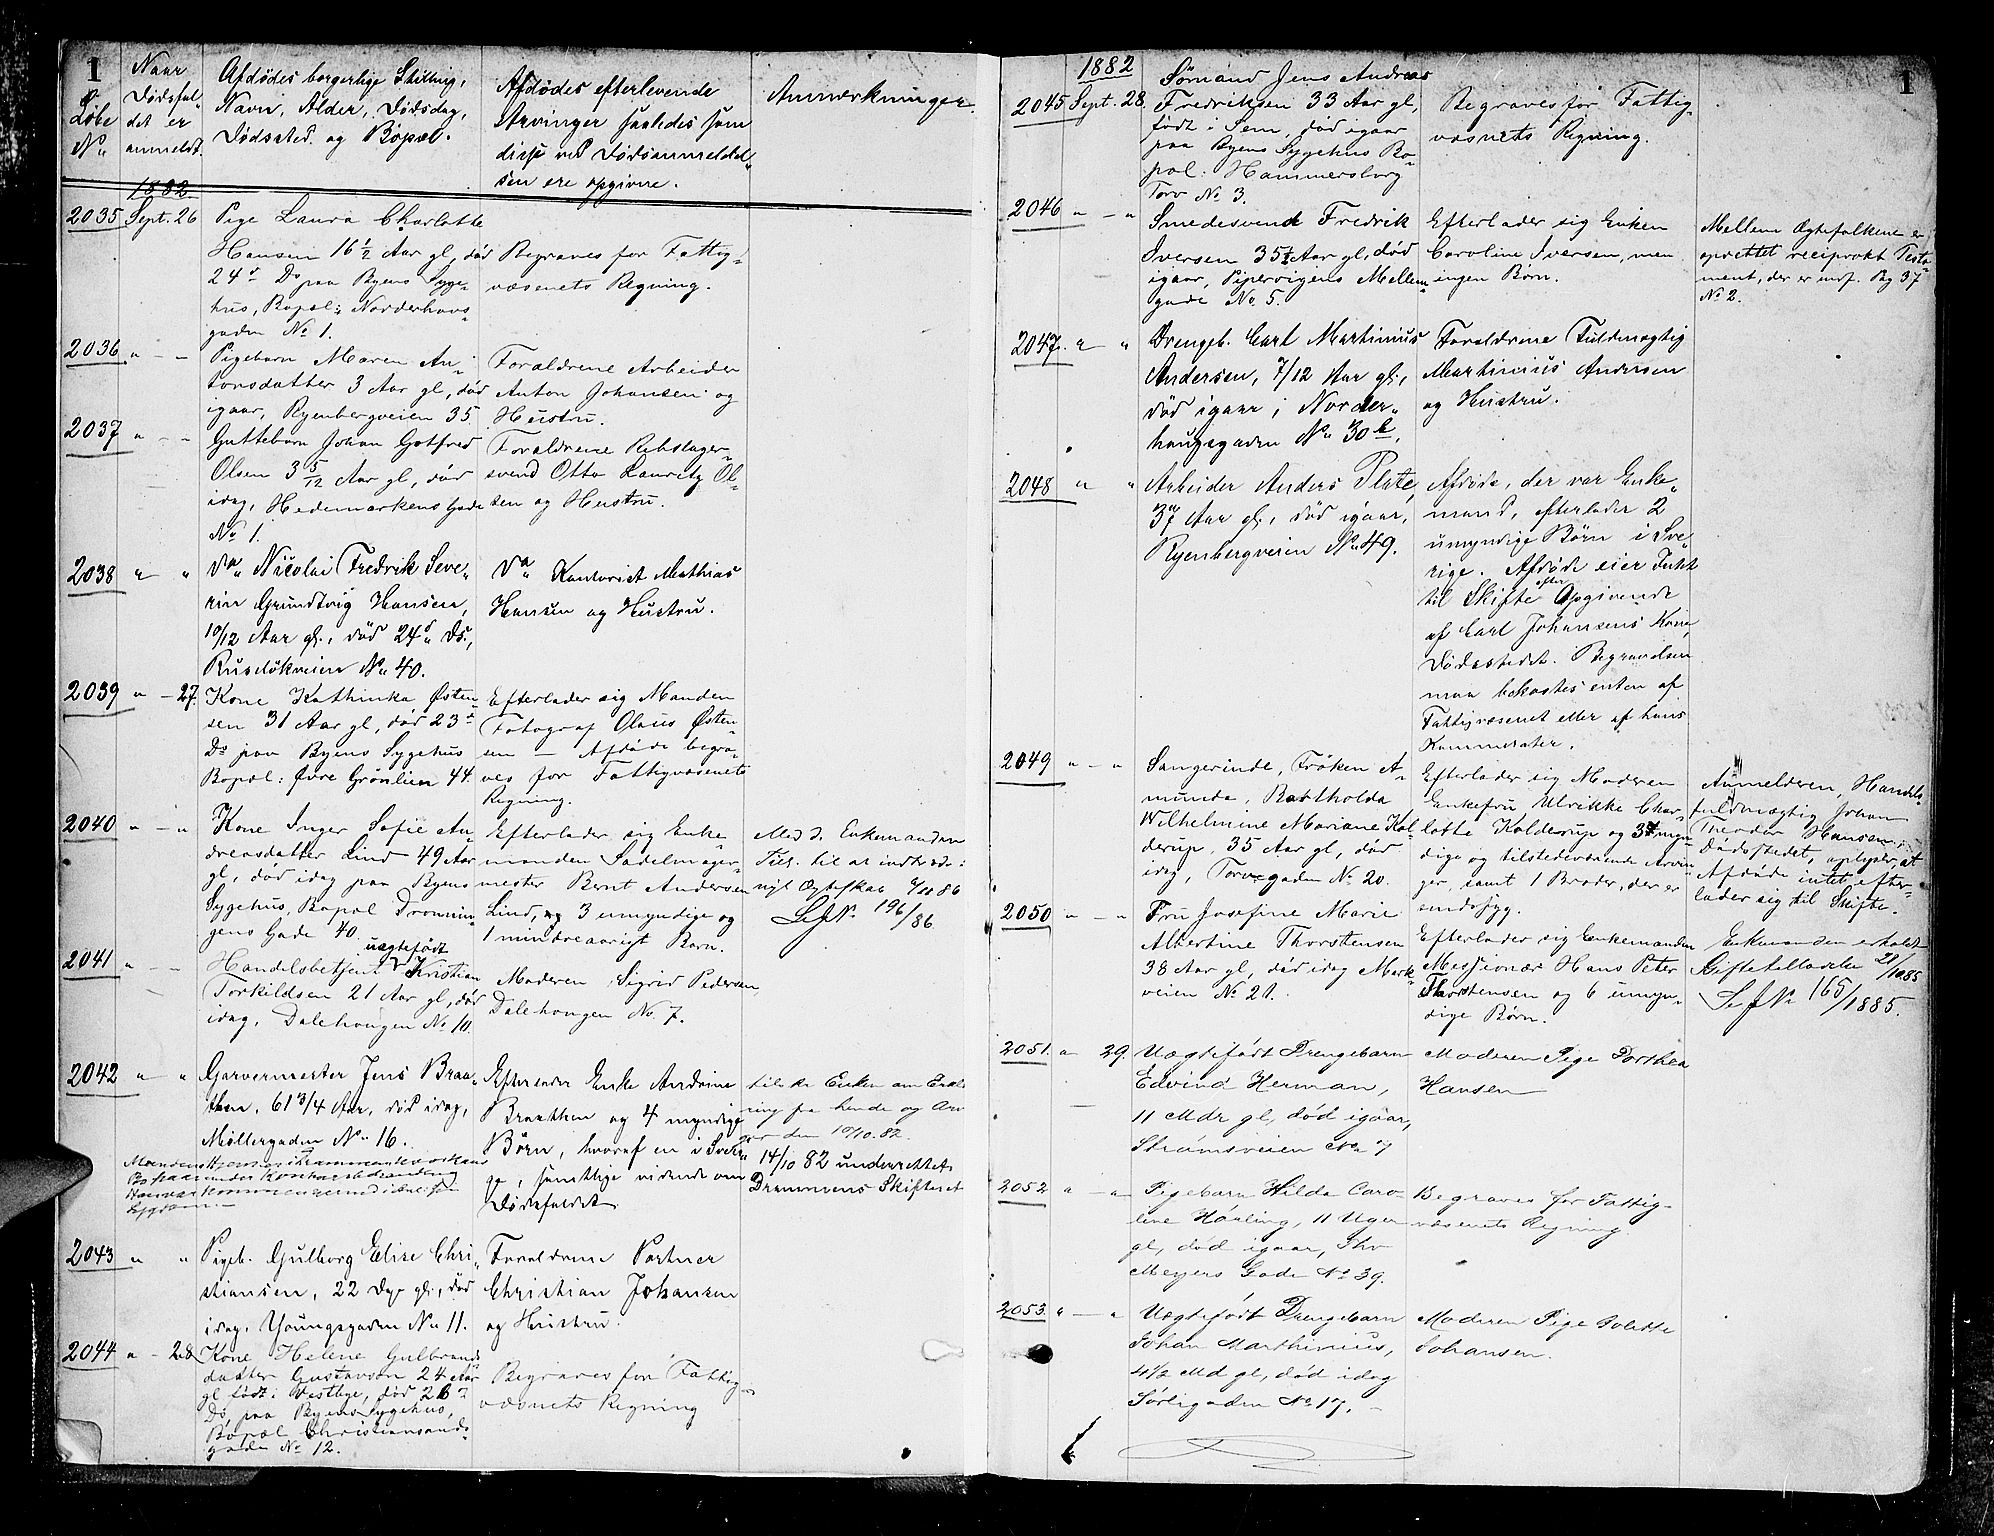 1
Løbe
No
Naar
Dødsfal-
det er
anmeldt.
Afdødes borgerlige Stilling,
Navn, Alder, Dødsdag,
Dødssted og Bopæl.
Afdødes efterlevende
Arvinger saaledes som
disse ved Dødsanmeldel-
sen ere opgivne.
Anmærkninger
1882
2035 Sept. 26
Pige Laura Charlotte
Hansen 16 1/2 Aar gl, død
24d Ds paa Byens Syge-
hus, Bopæl: Norderhovs-
gaden No 1.
Begraves for Fattig-
væsenets Regning.
2036 " - -
Pigebarn Maren An-
tonsdatter 3 Aar gl, død
igaar, Ryenbergveien 35.
Forældrene Arbeider
Anton Johansen og
Hustru.
2037 " - -
Guttebarn Johan Gotfred
Olsen 3 5/12 Aar gl, død
idag, Hedemarkens Gade
No 1.
Forældrene Rebslager-
svend Otto Lauritz Ol-
sen og Hustru.
2038 " "
Do Nicolai Fredrik Seve-
rin Grundtvig Hansen,
10/12 Aar gl., død 24d Ds.,
Ruseløkveien No 40.
Do Kontorist Mathias
Hansen og Hustru.
2039 " - 27.
Kone Kathinka Østen-
sen 31 Aar gl, død 23d
Ds paa Byens Sygehus
Bopæl: Øvre Grønlien 44.
Efterlader sig Manden
Fotograf Olaus Østen-
sen — Afdøde begra-
ves for Fattigvæsenets
Regning.
2040 " - "
Kone Inger Sofie An-
drensdatter Lind 49 Aar
gl, død idag paa Byens
Sygehus, Bopæl Dronnin-
gens Gade 40.
Efterlader sig Enke-
manden Sadelmager-
mester Bernt Andersen
Lind, og 3 umyndige og
1 mindreaarigt Barn.
Medd. Enkemanden
Till. til at indtræde i
nyt Ægteskab 6/10 86
No 196/86
2041 " - -
Handelsbetjent uægtefødt Kristian
Torkildsen 21 Aar gl, død
idag, Dalehougen No 10.
Moderen Sigrid Pedersen,
Dalehougen No 7.
2042 " "
Garvermester Jens Braa-
then, 61 3/4 Aar, død idag,
Møllergaden No 16.
Efterlader Enke Andrine
Braathen og 4 myndige
Børn, hvoraf en i Sveri-
ge, samtlige vidende om
Dødsfaldet.
Enken om
fra hende og Ar
den 10/10.82.
14/10 82 underrettet
Drammens Skifteret
2043 " "
Pigeb. Gulborg Elise Chri-
stiansen, 22 Dage gl., død
idag, Youngsgaden No 11.
Forældrene Portner
Christian Johansen
og Hustru.
2044 " - 28
Kone Helene Gulbrands
datter Gustavson 24 Aar
gl født i Vestbye, død 26d
Ds, paa Byens Sygehus,
Bopæl Christiansands-
gade No 12.
Begraves for Fattig-
væsnets Regning
1
1882
2045 Sept. 28.
Sømand Jens Andreas
Fredriksen 33 Aar gl,
født i Sem, død igaar
paa Byens Sygehus Bo-
pæl. Hammersborg
Torv No 3.
Begraves for Fattig-
væsnets Regning.
2046 " - "
Smedesvend Fredrik
Iversen 35 1/2 Aar gl, død
igaar, Pipervigens Mellem-
gade No 5.
Efterlader sig Enken
Caroline Iversen, men
ingen Børn.
Mellem Ægtefolkene er
oprettet reciprokt Testa-
ment, der er indf. Pag 37
No 2.
2047. " - "
Drengeb. Carl Martinius
Andersen, 7/12 Aar gl.,
død igaar i Norder-
hougsgaden No 30b.
Forældrene Fuldmægtig
Martinius Andersen
og Hustru.
2048 " "
Arbeider Anders Plate,
37 Aar gl., død igaar,
Ryenbergveien No 49.
Afdøde, der var Enke-
mand, efterlader 2
umyndige Børn i Sve-
rige. Afdøde eier Intet
til Skifte efter Opgivende
af Carl Johansens Kone,
Dødsstedet. Begravelsen
maa bekostes enten af
Fattigvæsenet eller af hans
Kammerater.
2049 " - "
Sangerinde, Frøken A-
munda, Bartholda
Wilhelmine Mariane Kol-
derup, 35 Aar gl, død
idag, Torvegaden No 20.
Efterlader sig Moderen
Enkefru Ulrikke Char-
lotte Kolderup og 3 myn-
dige og tilstedeværende Arvin-
ger, samt 1 Broder, der er
sindssyg.
Anmelderen, Handels-
fuldmægtig Johan
Theodor Hansen,
Dødsstedet, oplyser, at
Afdøde intet efter-
lader sig til Skifte.
2050 " - "
Fru Josefine Marie
Albertine Thorstensen
38 Aar gl, død idag Mark-
veien No 21.
Efterlader sig Enkemanden
Missionær Hans Peter
Thorstensen og 6 umyn-
dige Børn.
Enkemanden erholdt
Giftetilladelse 21/10 85
No 165/1885.
2051. " 29.
Uægtefødt Drengebarn
Edvind Herman,
11 Mdr gl, død igaar,
Strømsveien No 7
Moderen Pige Dorthea
Hansen
2052 " - "
Pigebarn Hilda Caro-
line Høxling, 11 Uger
gl, død igaar, Thv
Meyers Gade No 39.
Begraves for Fattig-
væsnets Regning
2053. " - "
Uægtefødt Drengebarn
Johan Marthinius,
4 1/2 Md gl, død idag
Sørligaden No 17.
Moderen Pige Polette
Johansen.